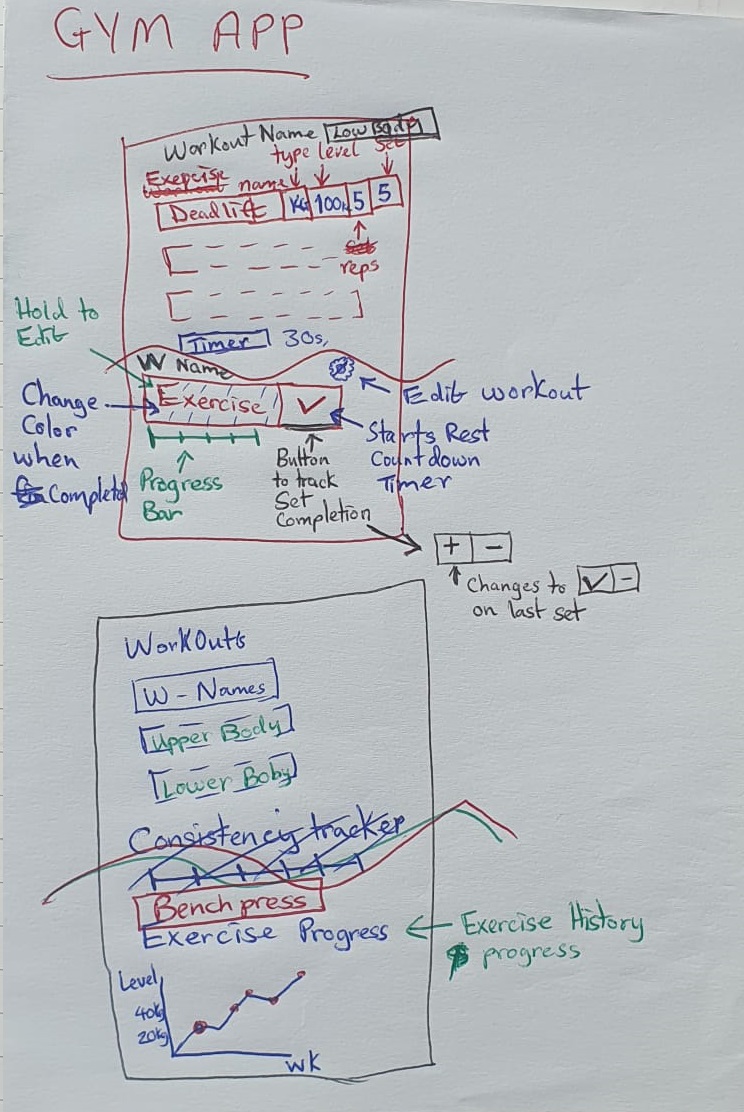 GYM APP
Workout Name Low Body
type level set
Exercise name
Deadlift Kg 100 5 5
reps
Hold to
Edit
Timer 30s,
W Name
Edit workout
Exercise ✓
Change
Color
when
Completed
Starts Rest
Countdown
Timer
Progress
Bar
Button
to track
Set
Completion
+ -
Changes to ✓ -
on last set
WorkOuts
W - Names
Upper Body
Lower Boby
Consistency tracker
Bench press
Exercise Progress
Exercise History
progress
Level
40kg
20kg
WK